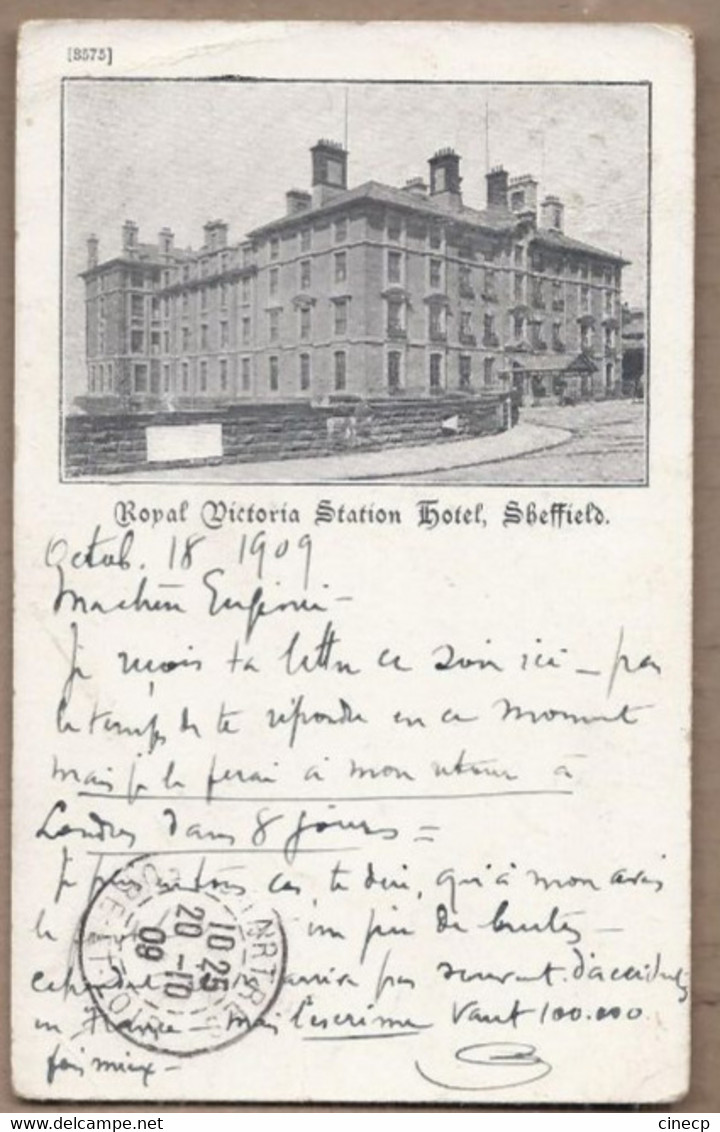 [8575]
Royal Victoria Station Hotel, Sheffield.
Octob. 18 1909
Ma chère Eugénie -
Je reçois ta lettre ce soir ici - pas
le temps de te répondre en ce moment
mais je le ferai à mon retour à
Londres dans 8 jours =
Je puis en tous cas te dire, qu'à mon avis
le un peu de brutes -
cependant arrive pas souvent d'accidents
en France - mais l'escrime vaut 100.000
fois mieux -
CHARTRES
EURE-ET-LOIR
10 25
20 - 10
09
cinecp